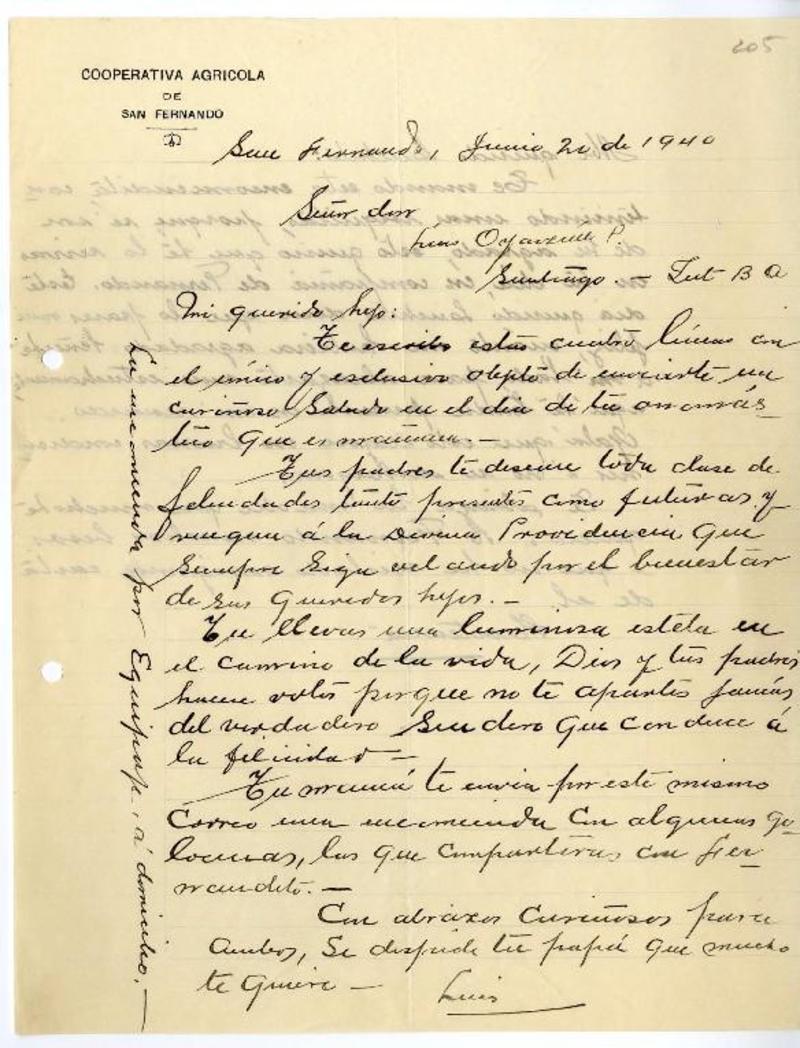 205
COOPERATIVA AGRICOLA
DE
SAN FERNANDO
San Fernando, Junio 20 de 1940
Señor don
Luis Oyarzún P.
Santiago. –
Mi querido hijo:
Te escribo estas cuatro líneas con
el único y esclusivo objeto de enviarte un
cariñoso saludo en el dia de tu onomás-
tico que es mañana. –
Tus padres te desean toda clase de
felicidades tanto presentes como futuras y
ruegan á la Divina Providencia que
siempre siga velando por el bienestar
de sus queridos hijos. –
Tu llevas una luminosa estela en
el camino de la vida, Dios y tus padres
hacen votos porque no te apartes jamás
del verdadero sendero que conduce á
la felicidad –
Tu mamá te envia por este mismo
correo una encomienda con algunas go-
losinas, las que compartiras con Fer-
nandito. –
Con abrazos cariñosos para
ambos, se despide tu papá que mucho
te quiere –
Luis
La encomienda por Equipaje, á domicilio. –